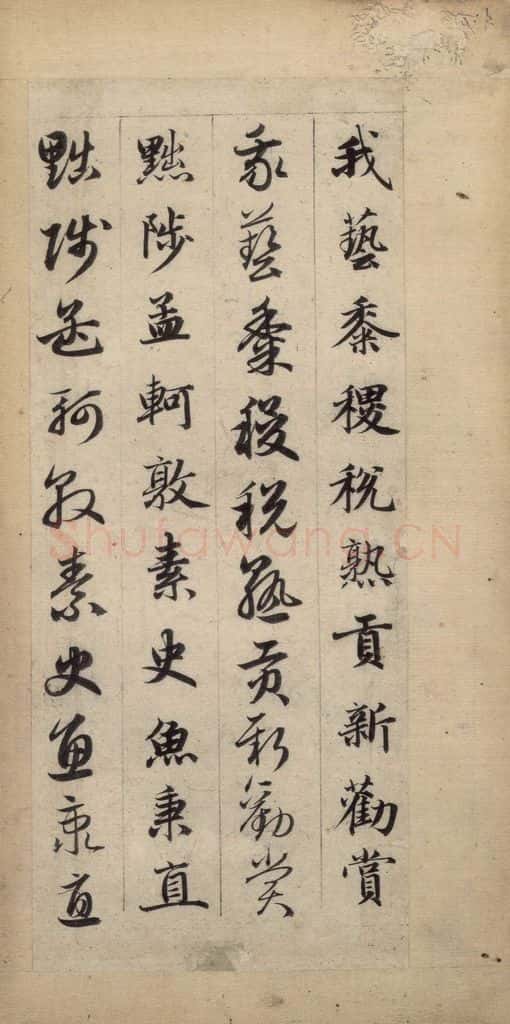 我藝黍稷稅熟貢新勸賞
我藝黍稷稅熟貢新勸賞
黜陟孟軻敦素史魚秉直
黜陟孟軻敦素史魚秉直
Shufawang.CN